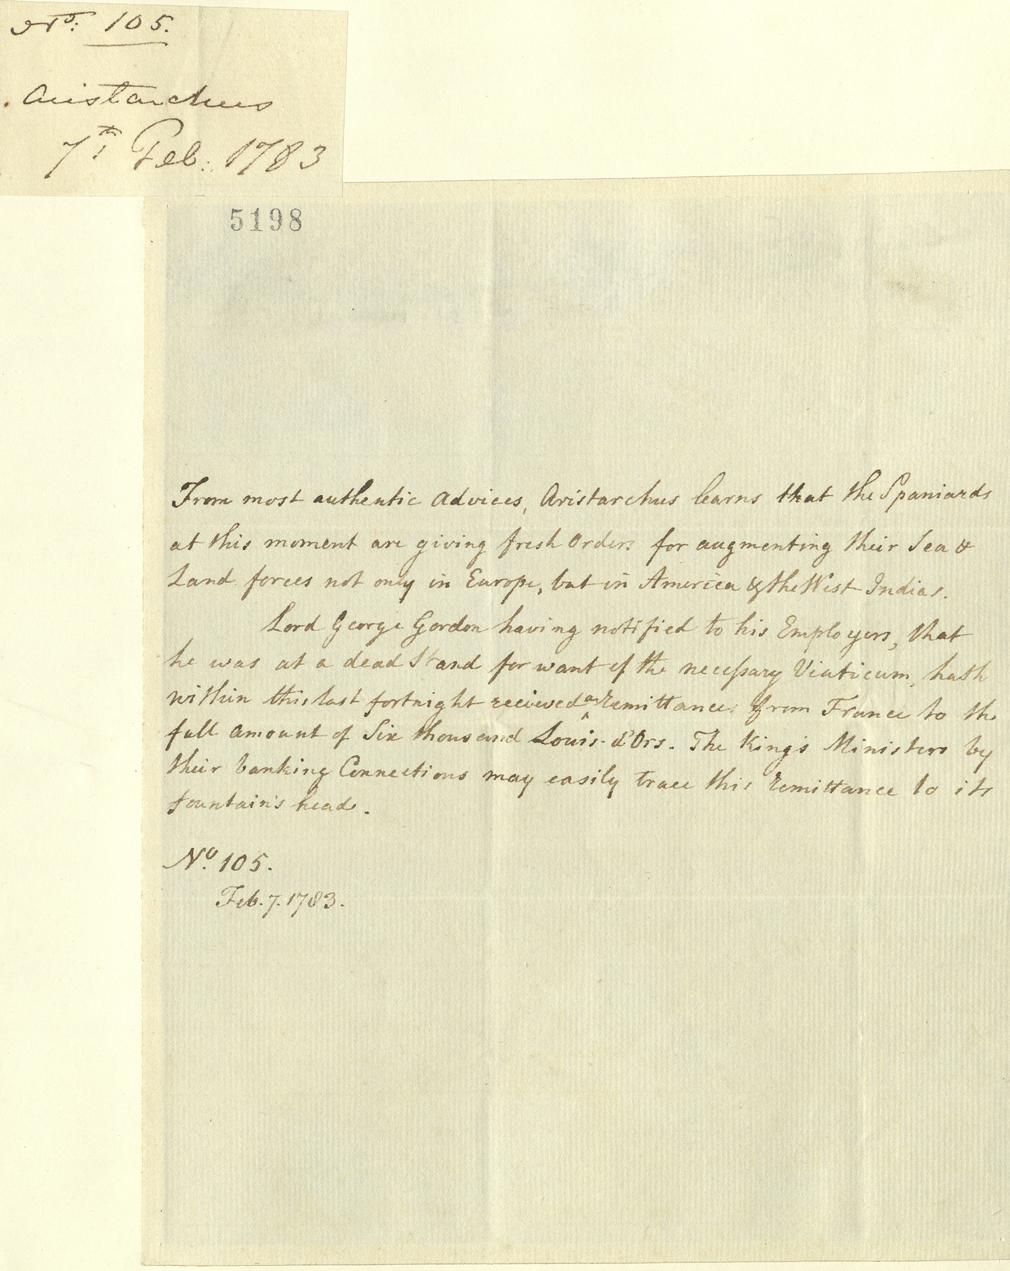 No: 105.
Aristarchus
7th Feb: 1783
5198
From most authentic Advices, Aristarchus learns that the Spaniards
at this moment are giving fresh Orders for augmenting their Sea &
Land forces not only in Europe, but in America & the West Indias.
Lord George Gordon having notified to his Employers, that
he was at a dead Stand for want of the necessary Viaticum, hath
within this last fortnight received a Remittance from France to the
full amount of Six thousand Louis-d'Ors. The King's Ministers by
their banking Connections may easily trace this Remittance to its
fountain's head.
No. 105.
Feb. 7. 1783.